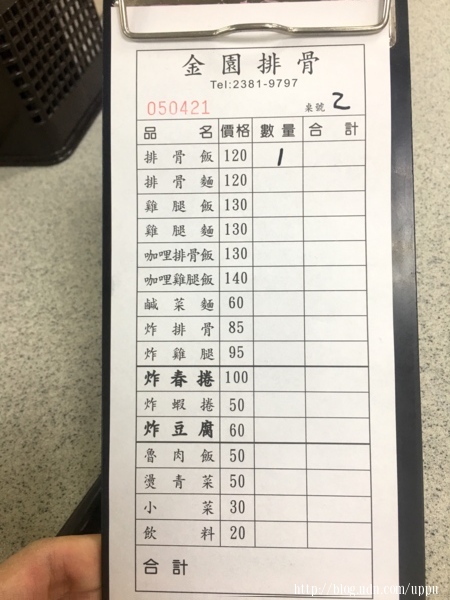 金園排骨
Tel:2381-9797
050421 桌號 2
品名 價格 數量 合計
排骨飯 120 1
排骨麵 120
雞腿飯 130
雞腿麵 130
咖哩排骨飯 130
咖哩雞腿飯 140
鹹菜麵 60
炸排骨 85
炸雞腿 95
炸春捲 100
炸蝦捲 50
炸豆腐 60
魯肉飯 50
燙青菜 50
小菜 30
飲料 20
合計
http://blog.udn.com/uppu